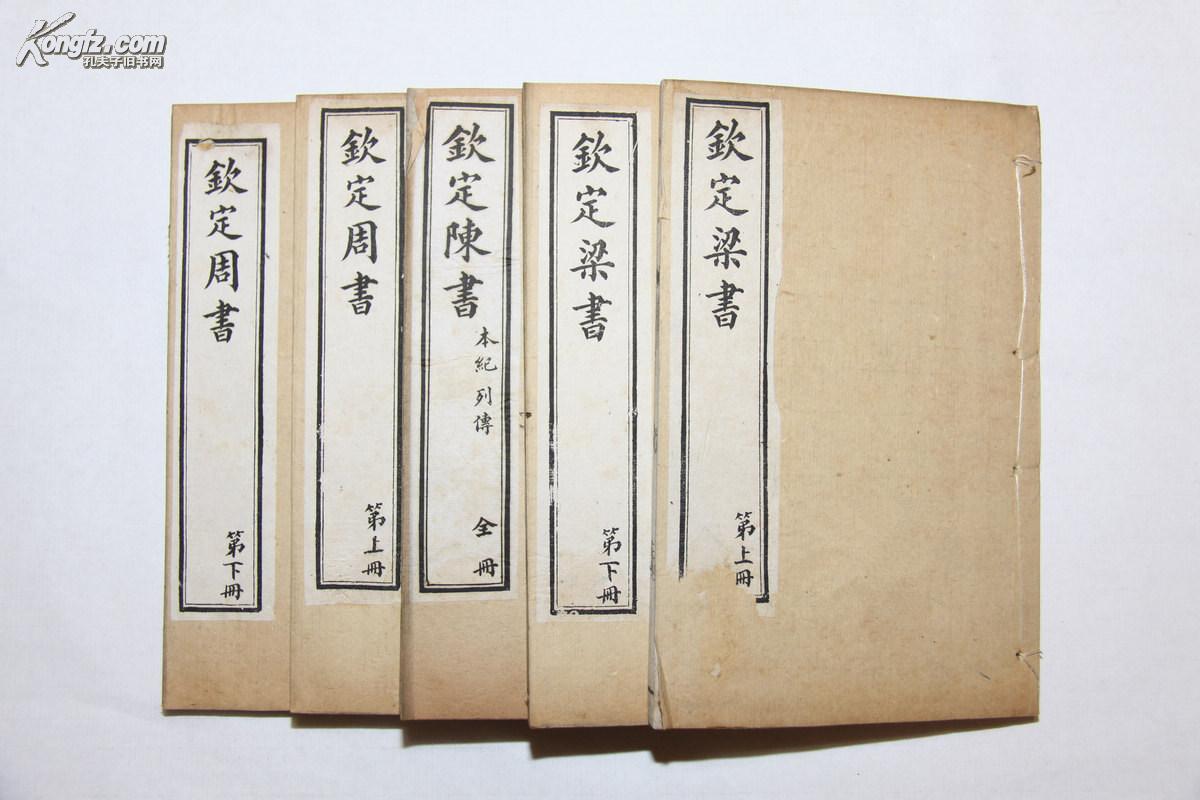 Kongfz.com
孔夫子旧书网
欽定梁書
第上冊
欽定梁書
第下冊
欽定陳書
本紀列傳
全冊
欽定周書
第上冊
欽定周書
第下冊